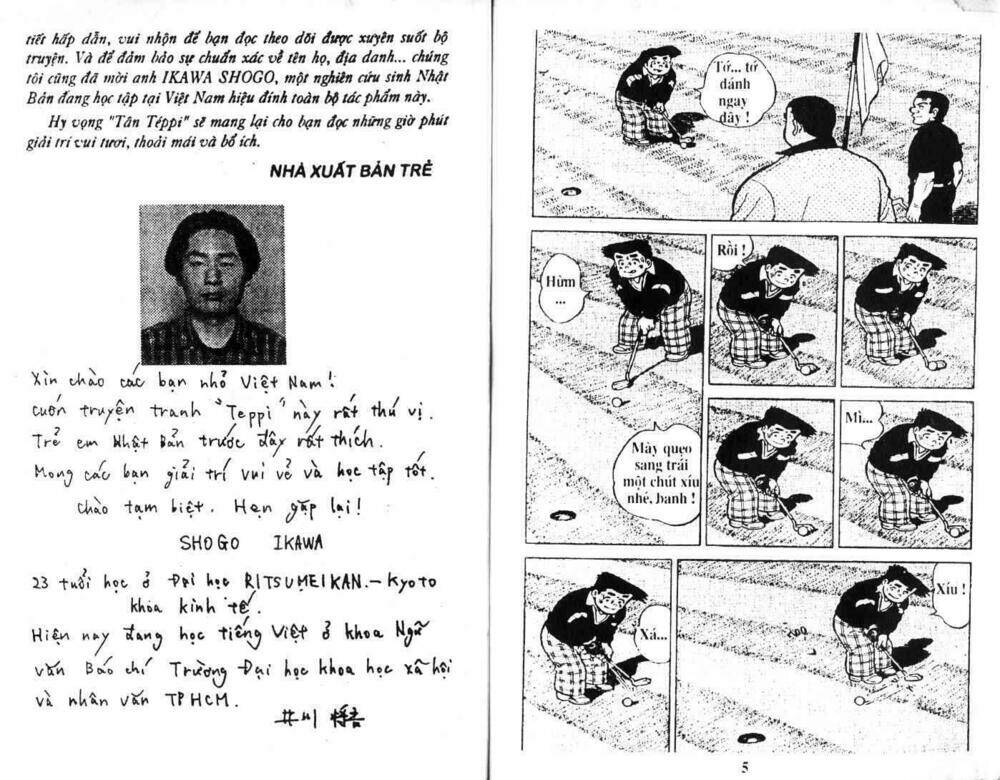 tiết hấp dẫn, vui nhộn để bạn đọc theo dõi được xuyên suốt bộ
truyện. Và để đảm bảo sự chuẩn xác về tên họ, địa danh... chúng
tôi cũng đã mời anh IKAWA SHOGO, một nghiên cứu sinh Nhật
Bản đang học tập tại Việt Nam hiệu đính toàn bộ tác phẩm này.
Hy vọng "Tân Téppi" sẽ mang lại cho bạn đọc những giờ phút
giải trí vui tươi, thoải mái và bổ ích.
NHÀ XUẤT BẢN TRẺ
Xin chào các bạn nhỏ Việt Nam!
Cuốn truyện tranh "Teppi" này rất thú vị.
Trẻ em Nhật Bản trước đây rất thích.
Mong các bạn giải trí vui vẻ và học tập tốt.
chào tạm biệt. Hẹn gặp lại!
SHOGO IKAWA
23 tuổi học ở Đại học RITSUMEIKAN.-Kyoto
khoa kinh tế.
Hiện nay đang học tiếng Việt ở khoa Ngữ
văn Báo chí Trường Đại học khoa học xã hội
và nhân văn TPHCM.
井川
Tớ... tớ
đánh
ngay
đây !
Hừm
...
Rồi !
Mày quẹo
sang trái
một chút xíu
nhé, banh !
Mi...
Xá...
Xíu !
5